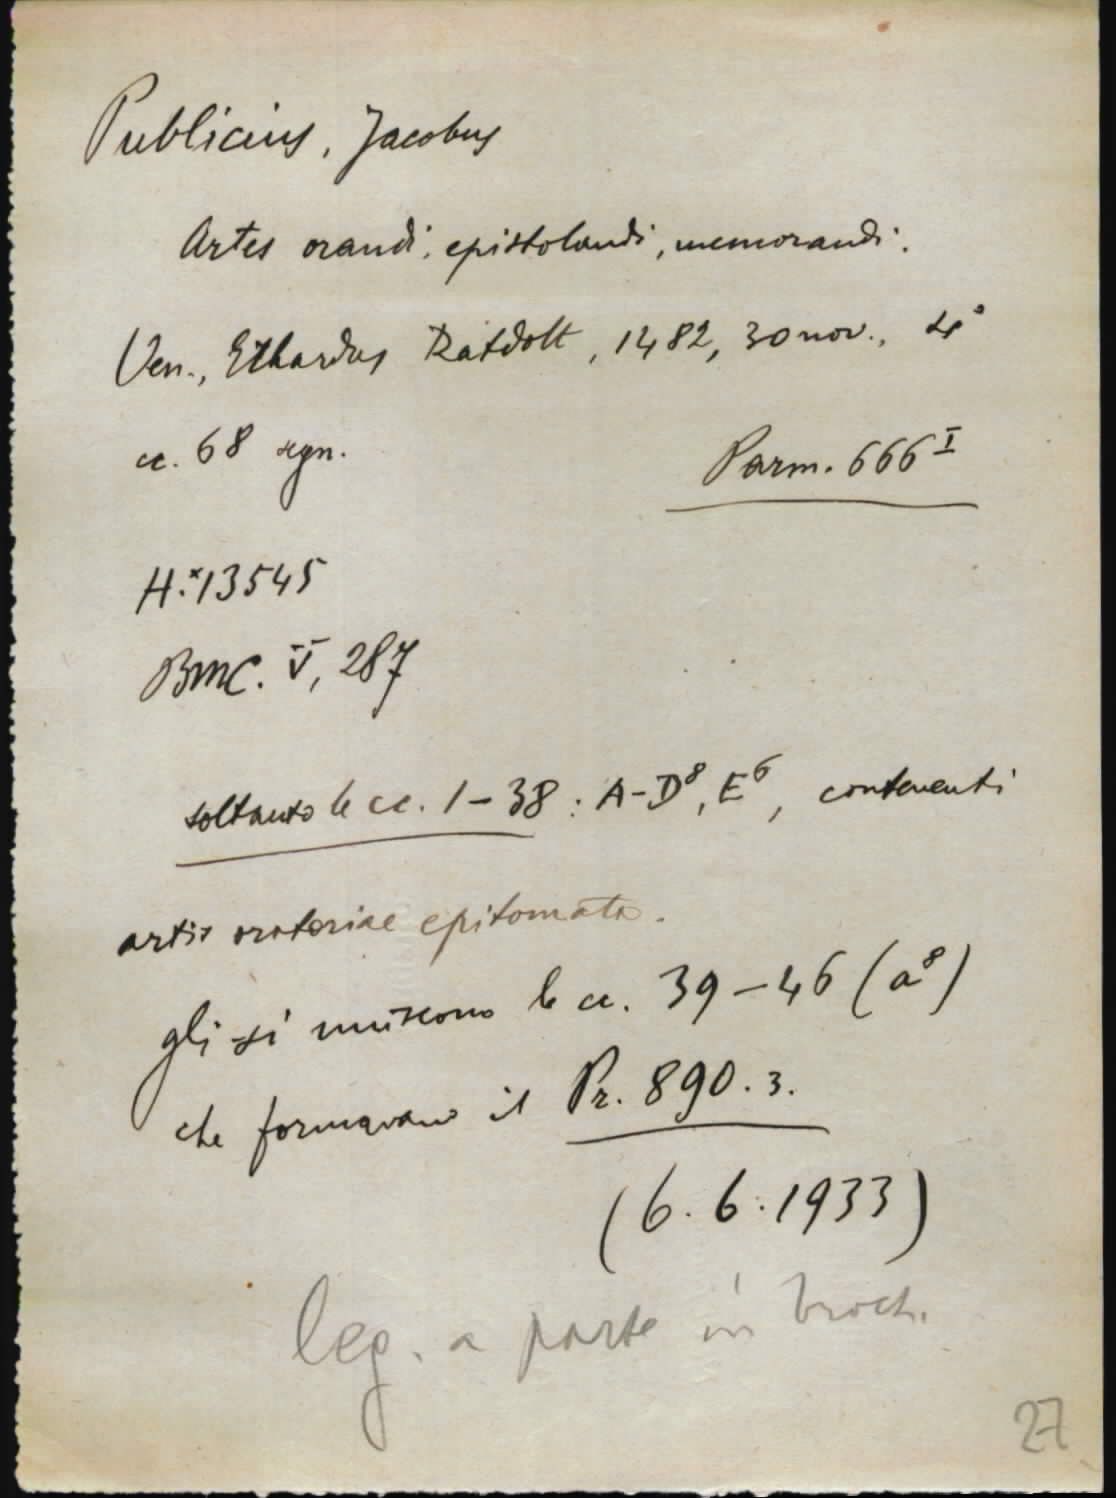 Publicius, Jacobus
Artes orandi, epistolandi, memorandi.
Ven., Erhardus Ratdolt, 1482, 30 nov., 4°
cc. 68 segn.
Parm. 666 I
H.*13545
BMC. V, 287
soltanto le cc. 1-38: A-D⁸, E⁶, contenenti
artis oratoriae epitomata.
gli si uniscono le cc. 39-46 (a⁸)
che formavano il Pr. 890.3.
(6.6.1933)
leg. a parte in broch.
27